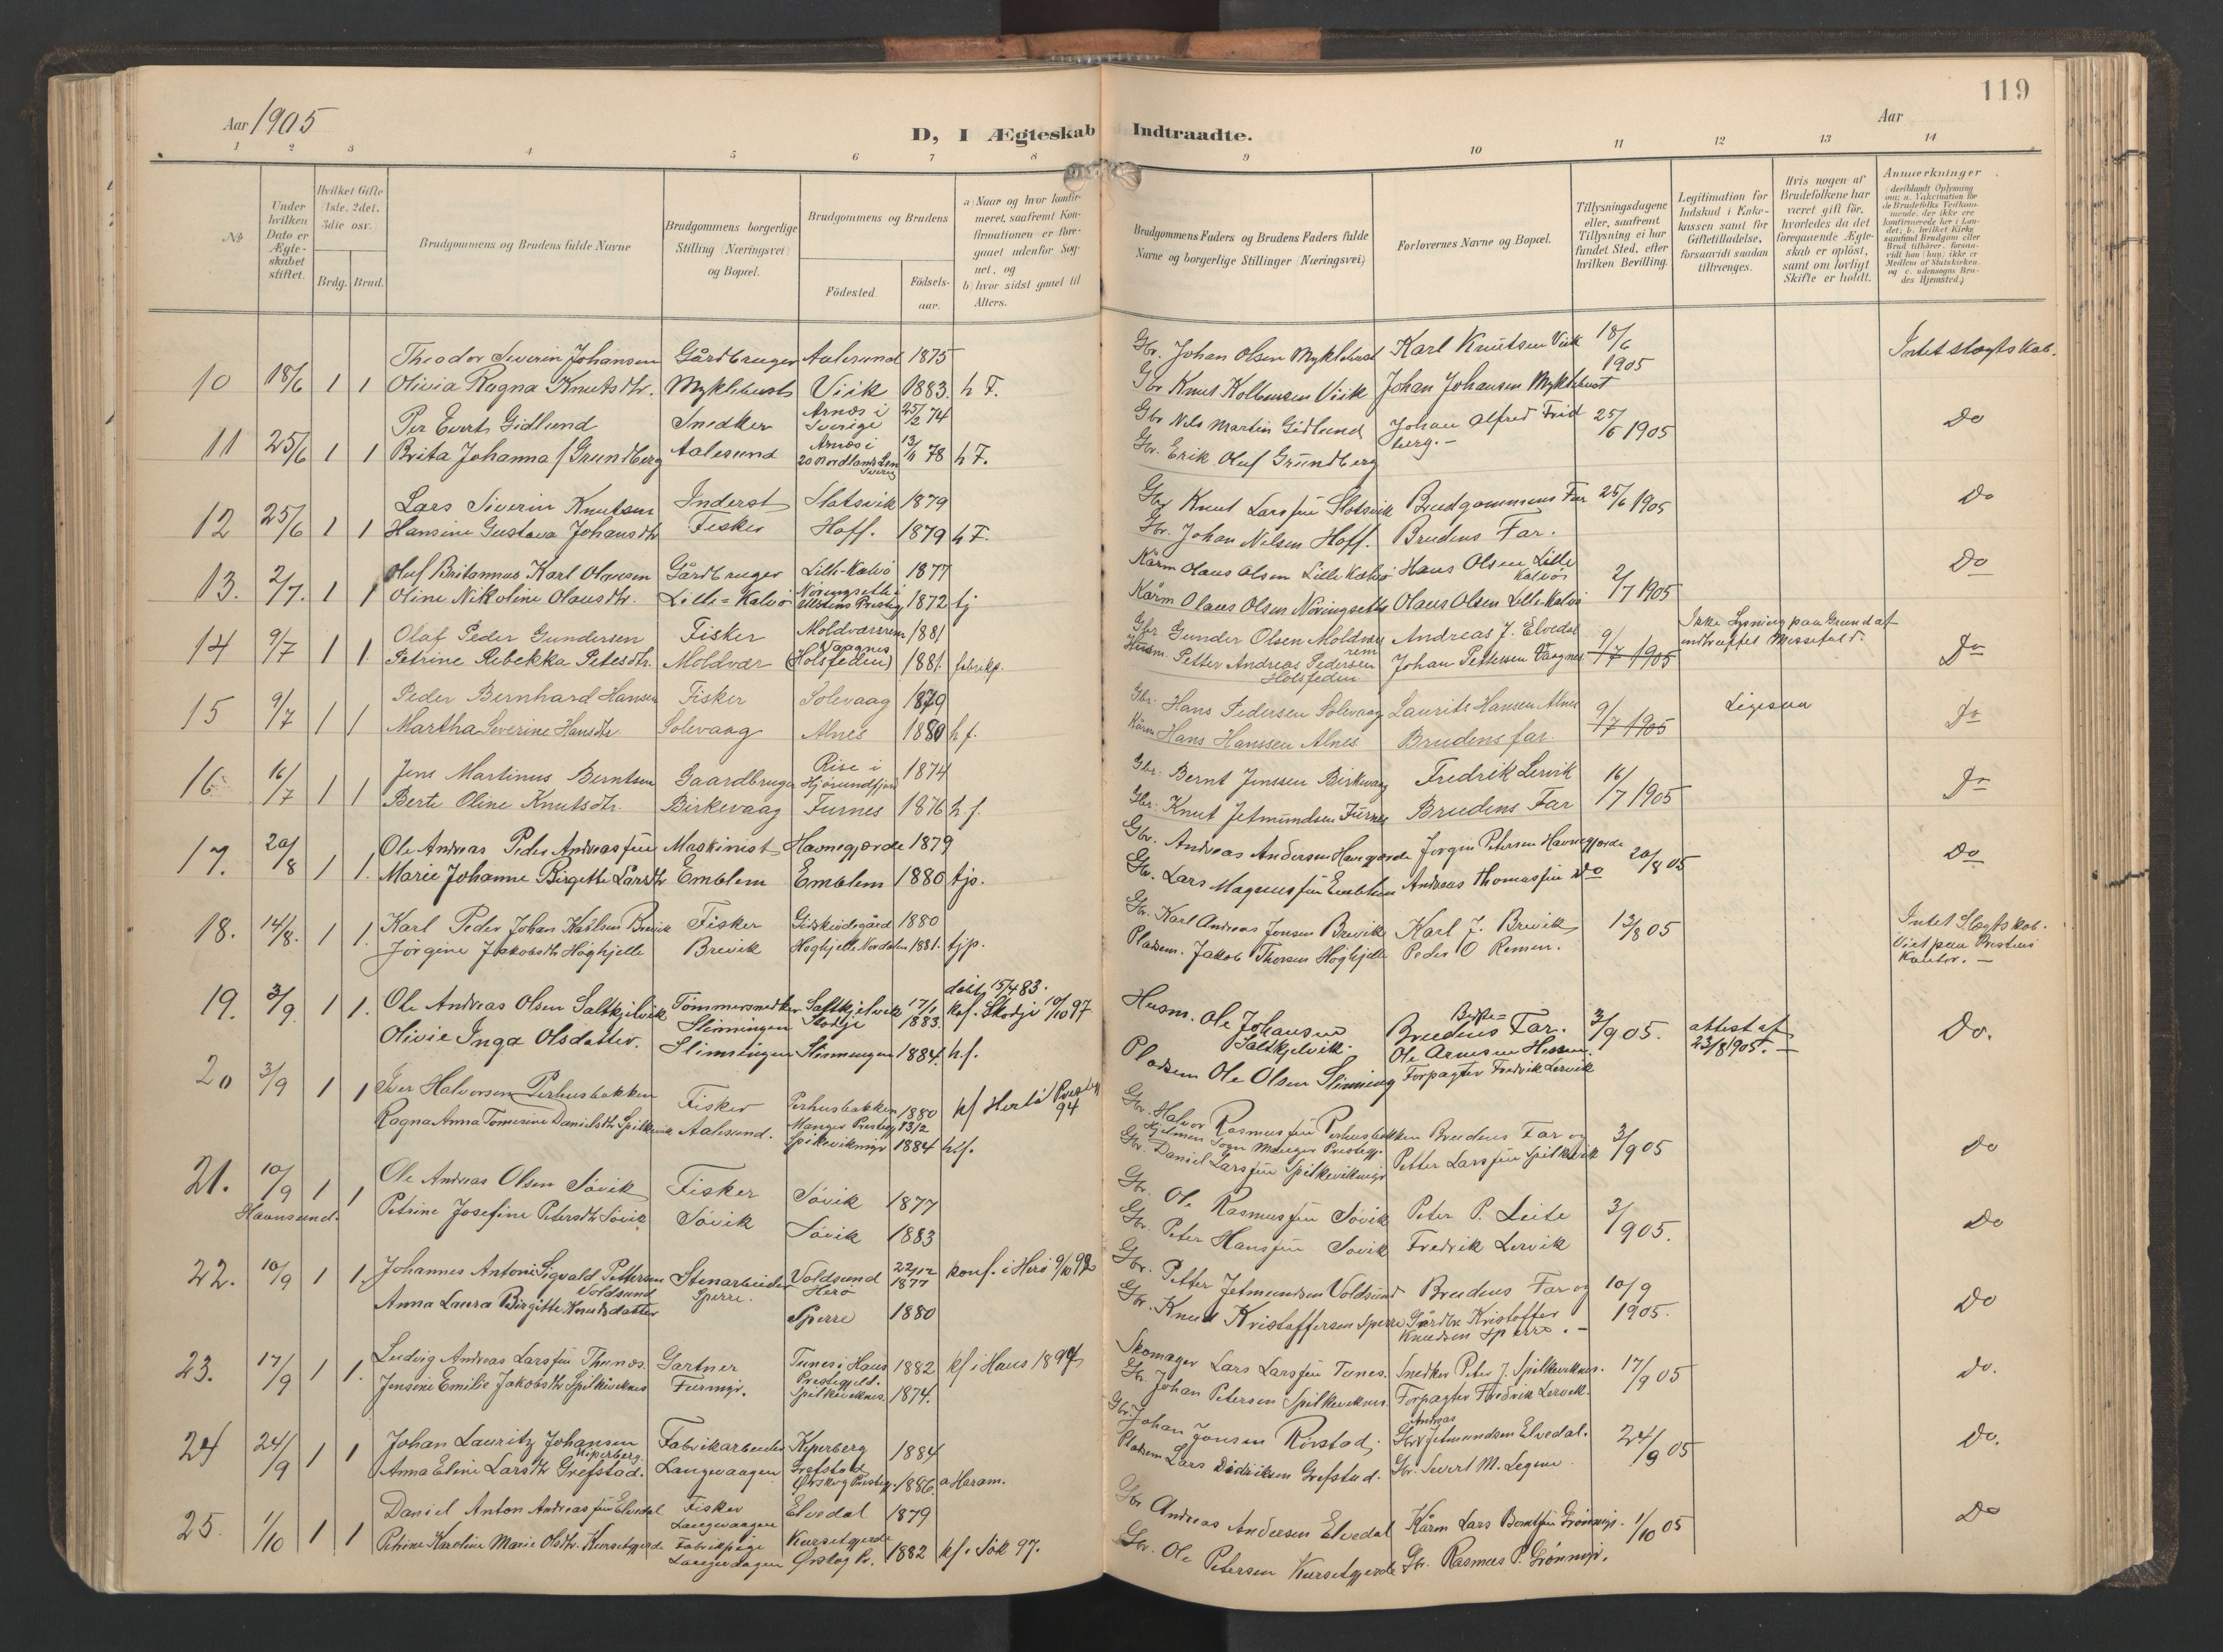 119
Aar 1905
Aar
D, I Ægteskab Indtraadte.
1 2 3 4 5 6 7 8 9 10 11 12 13 14
No
Under hvilken Dato er Ægte-skabet stiftet.
Hvilket Gifte (1ste, 2det, 3die osv.
Brdg. Brud.
Brudgommens og Brudens fulde Navne
Brudgommens borgerlige Stilling (Næringsvei) og Bopæl.
Brudgommens og Brudens
Fødested. Fødsels-aar.
a) Naar og hvor konfir-meret, saafremt Kon-firmationen er fore-gaaet udenfor Sog-net, og
b) hvor sidst gaaet til Alters.
Brudgommens Faders og Brudens Faders fulde Navne og borgerlige Stillinger (Næringsvei)
Forlovernes Navne og Bopæl.
Tillysningsdagene eller, saafremt Tillysning ei har fundet Sted, efter hvilken Bevilling.
Legitimation for Indskud i Enke-kassen samt for Giftetilladelse, forsaavidt saadan tiltrænges.
Hvis nogen af Brudefolkene har været gift før, hvorledes da det foregaaende Ægte-skab er opløst, samt om lovligt Skifte er holdt.
Anmærkninger
10 18/6 1 1 Theodor Severin Johansen Gårdbruger Aalesund 1875 Gbr. Johan Olsen Myklebust Karl Knutsen Viik 18/6 1905 Intet slægtskab.
Olivia Ragna Knutsdtr. Myklebust Viik 1883. h F. Gbr Knut Kolbensen Viik Johan Johansen Myklebust
11 25/6 1 1 Per Evert Gidlund Snedker Arnäs i Sverige 25/2 74 Gbr Nils Martin Gidlund Johan Alfred Frid berg.- 25/6 1905 Do
Brita Johanna Grundberg Aalesund Arnäs i Nordlands Len 13/11 78 h F. Gbr. Erik Oluf Grundberg
12 25/6 1 1 Lars Siverin Knutsen Inderst Slotsvik 1879 Gbr Knut Larsen Slotsvik Brudgommens Far 25/6 1905 Do
Hansine Gustava Johansdtr Fisker Hoff. 1879 h F. Gbr. Johan Nilsen Hoff. Brudens Far.
13. 2/7. 1 1 Oluf Britannus Karl Olausen Gårdbruger Lille-Kalvø 1877 Kårm Olaus Olsen Lille Kalvø Hans Olsen Lille Kalvø 2/7 1905 Do
Oline Nikoline Olausdtr. Lille=Kalvø Nøringsetli i Ulstens Prestg 1872 tj Kårm Olaus Olsen Nøringsetli Olaus Olsen Lille-Kalvø
14 9/7 1 1. Olaf Peder Gundersen Fisker Moldværsrem 1881 Gbr Gunder Olsen Moldværrem Andreas J. Elvedal 9/7 1905 Ikke Lysning paa Grund af indtruffet Messefald. Do
Petrine Rebekka Petersdtr. Moldvær Vaagnes (Holsfeden) 1881. fabrikp. Husm. Petter Andreas Pedersen Holsfeden Johan Pettersen Vaagnes
15 9/7 1 1 Peder Bernhard Hansen Fisker Solevaag 1879 Gbr: Hans Pedersen Solevaag Laurits Hansen Alnes 9/7 1905 Ligesaa Do
Martha Severine Hansdtr Solevaag Alnes 1880 h f. Kårm Hans Hanssen Alnes Brudens far.
16 16/7 1 1 Jens Martinus Berntsen Gaardbruger Rise i Hjørundfjord 1874 Gbr: Bernt Jenssen Birkevaag Fredrik Lervik 16/7 1905 Do
Berte Oline Knutsdtr. Birkevaag Furnes 1876 h. f. Gbr: Knut Jetmundsen Furnes Brudens Far
17. 20/8 1 1. Ole Andreas Peder Andreassen Maskinist Havnegjærde 1879 Gbr. Andreas Andersen Havnegjærde Jørgen Petersen Havnegjærde 20/8 05 Do
Marie Johanne Birgitte Larsdtr Emblem Emblem 1880 tjp. Gbr. Lars Magnussen Emblem Andreas Thomassen Do
18. 14/8. 1 1. Karl Peder Johan Karlsen Brevik Fisker Giskeødegård 1880 Gbr. Karl Andreas Jonsen Brevik Karl J. Brevik 13/8 05 Intet Slægtskab. Viet paa Prestens Kontor. —
Jørgine Jakobsdtr Høghjelle Brevik Høghjelle Nordalen 1881. tjp. Pladsm. Jakob Thorsen Høghjelle Peder O Remen.
19. 3/9. 1 1. Ole Andreas Olsen Saltkjelvik Tømmersnedker Slinningen Saltkjelvik Skodje 17/1 1883. døbt 15/4 83. kof. Skodje 10/10 97 Husm. Ole Johansen Saltkjelvik. Brudens Bedste=Far. Ole Arnesen Hessen. 3/9 05. attest af 23/8 1905. — Do.
Olivie Inga Olsdatter. Slinningen Slinningen 1884. h. f. Pladsm Ole Olsen Slinning Forpagter Fredrik Lervik
20 3/9 1 1 Iver Halvorsen Perhusbakken Fisker Perhusbakken Manger Prestg 1880 13/2 kf Herlø 94 Gbr. Halvor Rasmussen Perhusbakken Hjelmen Sogn Manger Prestegj. Brudens Far og 3/9 05 Do
Ragna Anna Tomesine Danielsdtr Spilkevik Aalesund. Spilkevikmyr 1884 h. f. Gbr. Daniel Larssen Spilkevikmyr Petter Larssen Spilkevik
21. 10/9 1 1 Ole Andreas Olsen Søvik Fisker Søvik 1877 Gbr. Ole Rasmussen Søvik Peter P. Leite 3/9 05. Do
Havnsund. Petrine Josefine Petersdtr Søvik Søvik Søvik 1883 Gbr. Peter Hanssen Søvik Fredrik Lervik
22. 10/9 1 1. Johannes Antoni Sigvald Pettersen Voldsund Stenarbeider Sperre. Voldsund Herø 22/12 1877 konf. i Herø 9/10 92 Gbr. Petter Jetmundsen Voldsund Brudens Far og 10/9 1905. Do
Anna Laura Birgitte Knudsdatter Sperre 1880 Gbr. Knud Kristoffersen Sperre Gårdbr. Kristoffer Knudsen Sperre. —
23. 17/9 1 1. Ludvig Andreas Larssen Thunes. Gartner Tunes i Haus Prestegjeld. 1882 kf i Haus 1897 Skomager Lars Larssen Tunes. Snedker Peter J. Spilkeviknes. 17/9 05 do.
Jensine Emilie Jakobsdtr Spilkeviknes Furmyr. Spilkeviknes. 1874. Gbr. Johan Petersen Spilkeviknes. Forpagter Fredrik Lervik.
24 24/9 1 1 Johan Lauritz Johansen Kiperberg Fabrikarbeider Kiperberg 1884 Gbr. Johan Jonsen Rørstad; Gbr Andreas Jetmundsen Elvedal. 24/9 05 Do.
Anna Eline Larsdtr Grefstad. Langevaagen Grefstad Ørskog Presteg. 1886. a Haram. Pladsm Lars Didriksen Grefstad. Gbr. Sivert M. Legene.
25. 1/10 1 1 Daniel Anton Andreassen Elvedal Fisker Langevaagen Elvedal 1879 Gbr Andreas Andersen Elvedal Kårm Lars Berntsen Grønmyr. 1/10 05 Do
Petrine Karoline Marie Olsdtr. Kursetgjerde Fabrikpige Langevaagen Kursetgjerde Ørskog Pr. 1882 kf. Søk 97. Gbr. Ole Petersen Kursetgjerde Gbr. Rasmus P. Grønmyr.